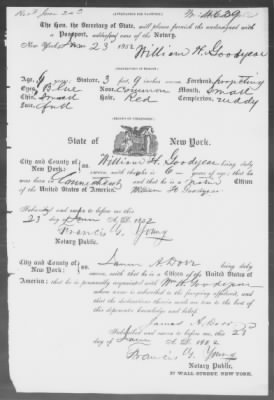 The Hon. the Secretary of State, will please furnish the undersigned with
a Passport, addressed care of the Notary.
New York June 23 1852
William H. Goodyear
Age, 6 years Stature, 3 feet 9 inches Forehead projecting
Eyes Blue Nose common Mouth Small
Chin Small Hair Red Complexion ruddy
Face full
State of New York.
City and County of New York: William H. Goodyear being duly
sworn, saith that he is 6 years of age; that he
was born in Connecticut and that he is a native Citizen
of the United States of America
William H Goodyear
Subscribed and sworn to before me this
23 day of June A. D. 1852
Francis G. Young
Notary Public.
City and County of New York: James A Dorr being duly
sworn, saith that he is a Citizen of the United States of
America: that he is personally acquainted with Wm H. Goodyear
whose name is subscribed to the foregoing affidavit, and
that the declarations therein with are true to the best of this
deponents knowledge and belief.
James A. Dorr
Subscribed and sworn to before me, this 23
day of June A. D. 1852
Francis G. Young
Notary Public.
57 WALL STREET, NEW YORK.